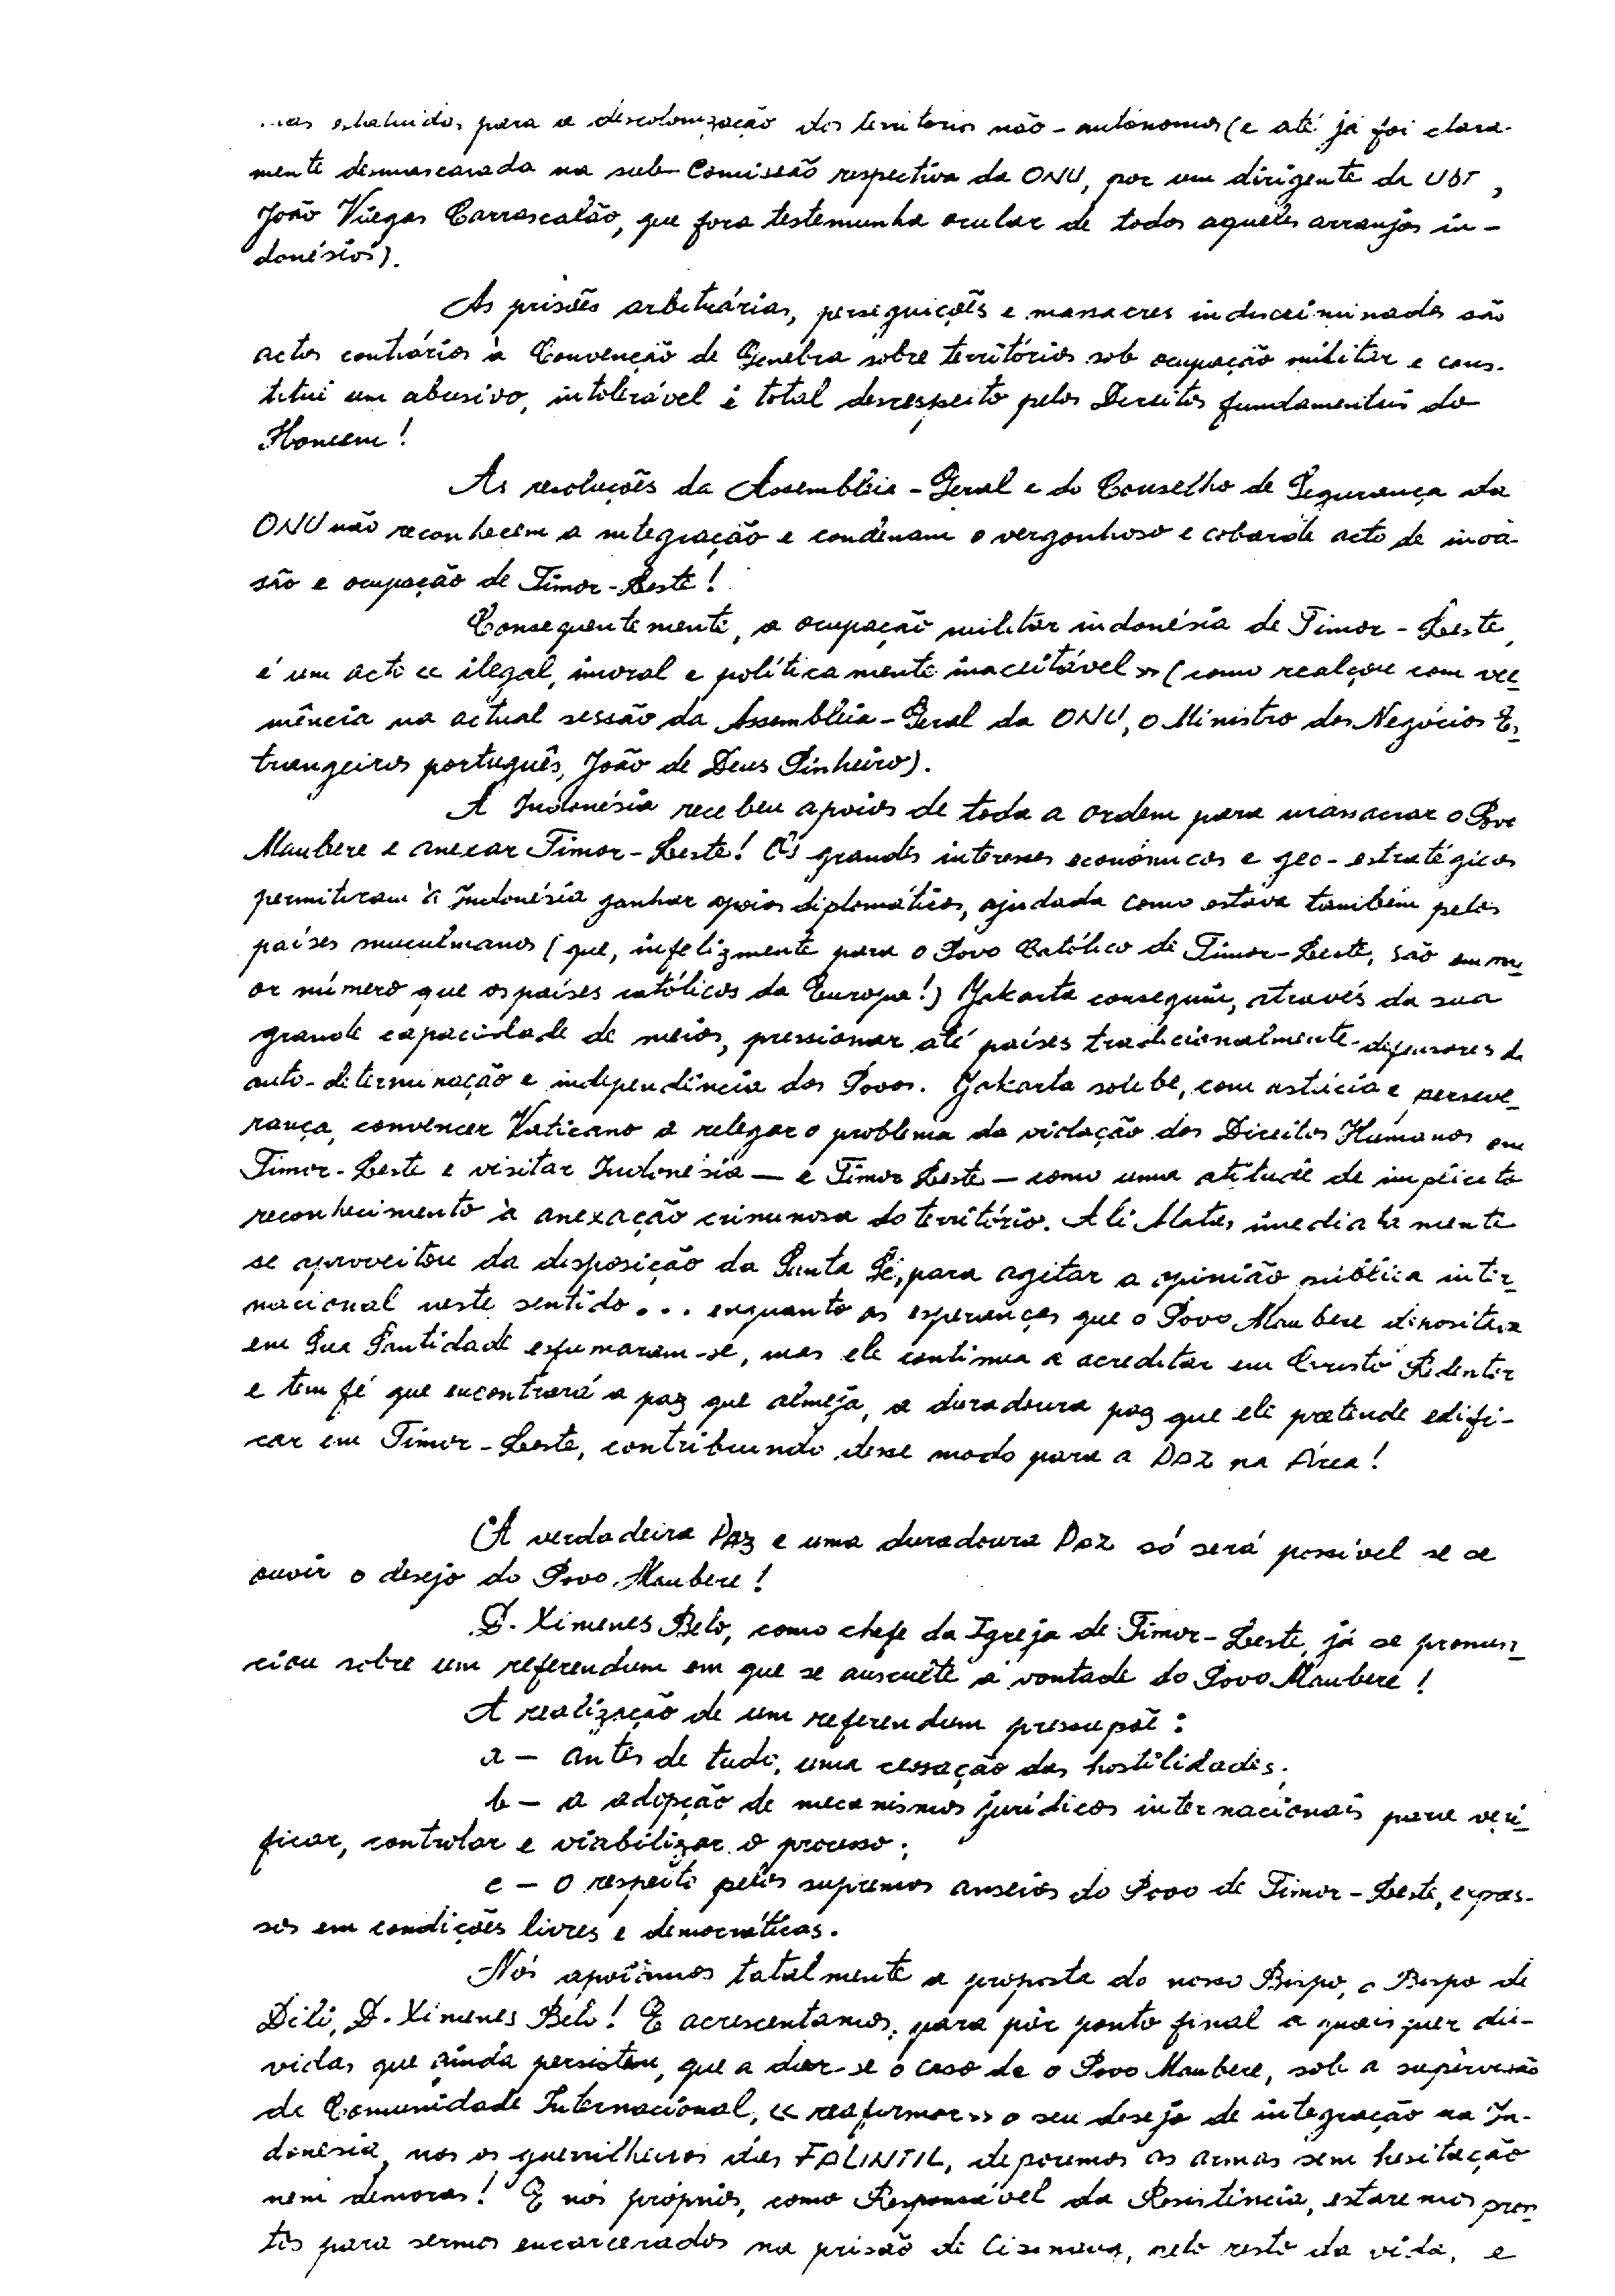 estatuidas para a descolonização dos territórios não-autónomos (e até já foi clara-
mente desmascarada na sub-Comissão respectiva da ONU, por um dirigente da UDT,
João Viegas Carrascalão, que fora testemunha ocular de todos aqueles arranjos in-
donésios).
As prisões arbitrárias, perseguições e massacres indiscriminados são
actos contrários à Convenção de Genebra sobre territórios sob ocupação militar e cons-
titui um abusivo, intolerável e total desrespeito pelos Direitos fundamentais do
Homem!
As resoluções da Assembleia-Geral e do Conselho de Segurança da
ONU não reconhecem a integração e condenam o vergonhoso e cobarde acto de inva-
são e ocupação de Timor-Leste!
Consequentemente, a ocupação militar indonésia de Timor-Leste,
é um acto « ilegal, imoral e políticamente inaceitável » (como realçou com vee_
mência na actual sessão da Assembleia-Geral da ONU, o Ministro dos Negócios Es_
trangeiros português, João de Deus Pinheiro).
A Indonésia recebeu apoios de toda a ordem para massacrar o Povo
Maubere e anexar Timor-Leste! Os grandes interesses económicos e geo-estratégicos
permitiram à Indonésia ganhar apoios diplomáticos, ajudada como estava também pelos
países muculmanos (que, infelizmente para o Povo Católico de Timor-Leste, são em mai_
or número que os países católicos da Europa!) Jakarta conseguiu, através da sua
grande capacidade de meios, pressionar até países tradicionalmente-defensores da
auto-determinação e independência dos Povos. Jakarta soube, com astúcia e perseve_
rança, convencer Vaticano a relegar o problema da violação dos Direitos Humanos em
Timor-Leste e visitar Indonésia — e Timor Leste — como uma atitude de implícito
reconhecimento à anexação criminosa do território. Ali Alatas imediatamente
se aproveitou da disposição da Santa Sé, para agitar a opinião pública inter_
nacional neste sentido... enquanto as esperanças que o Povo Maubere depositava
em Sua Santidade esfumaram-se, mas ele continua a acreditar em Cristo Redentor
e tem fé que encontrará a paz que almeja, a duradoura paz que ele pretende edifi-
car em Timor-Leste, contribuindo desse modo para a PAZ na Área!
A verdadeira Paz e uma duradoura Paz só será possível se se
ouvir o desejo do Povo Maubere!
D. Ximenes Belo, como chefe da Igreja de Timor-Leste, já se pronun_
ciou sobre um referendum em que se ausculte a vontade do Povo Maubere!
A realização de um referendum pressupõe:
a — antes de tudo, uma cessação das hostilidades;
b — a adopção de mecanismos jurídicos internacionais para veri_
ficar, controlar e viabilizar o processo;
c — o respeito pelos supremos anseios do Povo de Timor-Leste, expres-
sos em condições livres e democráticas.
Nós apoiamos totalmente a proposta do nosso Bispo, o Bispo de
Dili, D. Ximenes Belo! E acrescentamos, para pôr ponto final a quaisquer dú-
vidas que ainda persistem, que a dar-se o caso de o Povo Maubere, sob a supervisão
da Comunidade Internacional, « reafirmar » o seu desejo de integração na In-
donésia, nós os guerrilheiros das FALINTIL, deporemos as armas sem hesitação
nem demoras! E nós próprios, como Responsável da Resistência, estaremos pron_
tos para sermos encarcerados na prisão de Cipinang, pelo resto da vida, e